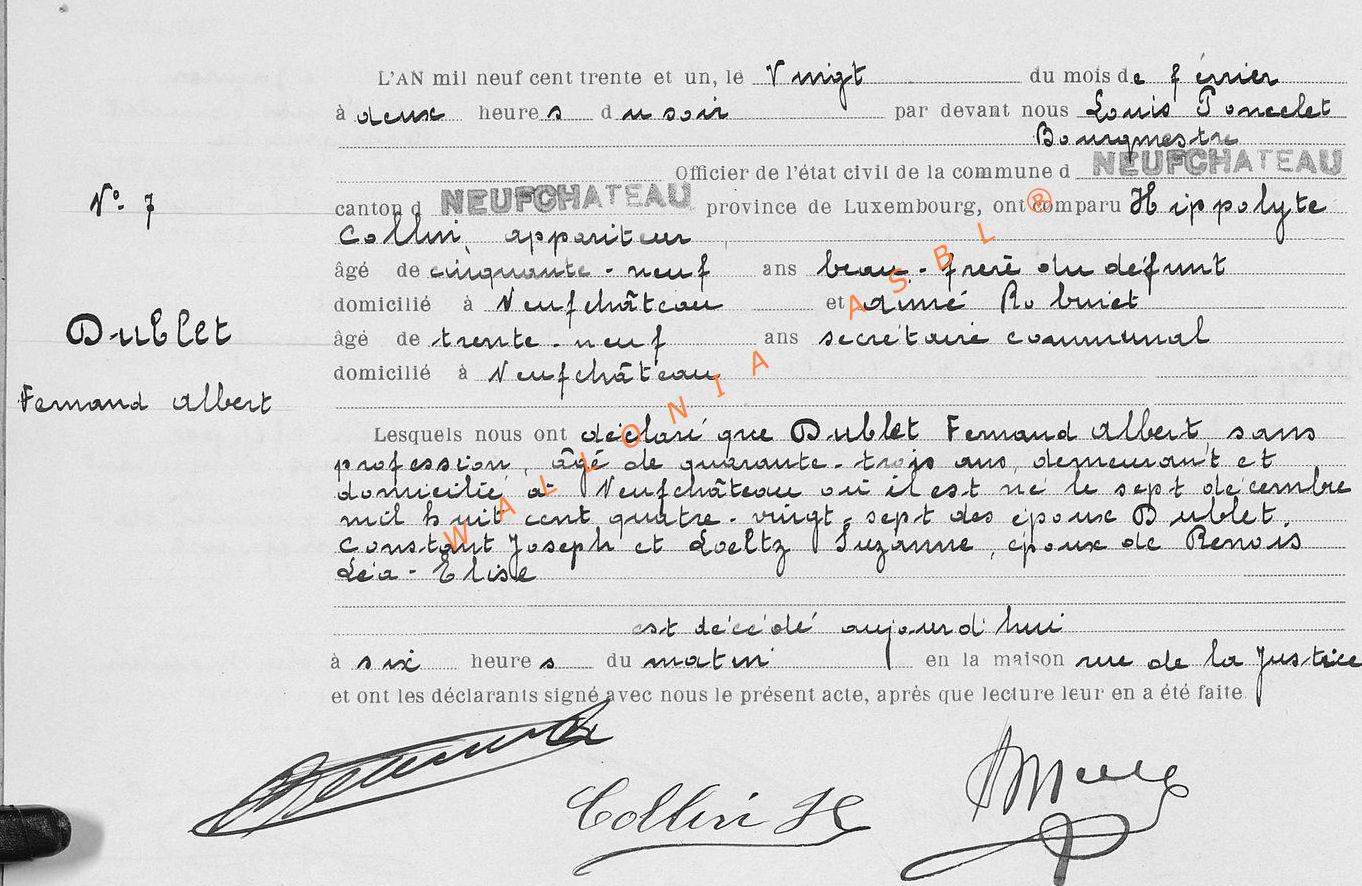 L'AN mil neuf cent trente et un, le Vingt du mois de février
à deux heures du soir par devant nous Louis Poncelet
Bourgmestre
Officier de l'état civil de la commune d NEUFCHATEAU
N° 7
canton d NEUFCHATEAU province de Luxembourg, ont comparu Hippolyte
Collin, appariteur
âgé de cinquante-neuf ans beau-frère du défunt
domicilié à Neufchâteau et Aimé
Dublet
âgé de trente-neuf ans secrétaire communal
domicilié à Neufchâteau
Fernand Albert
Lesquels nous ont déclaré que Dublet Fernand Albert, sans
profession, âgé de quarante-trois ans, demeurant et
domicilié à Neufchâteau où il est né le sept décembre
mil huit cent quatre-vingt-sept des époux Dublet,
Constant Joseph et Loeltz Suzanne, époux de Renois
Léa-Elise
est décédé aujourd'hui
à six heures du matin en la maison rue de la Justice
et ont les déclarants signé avec nous le présent acte, après que lecture leur en a été faite.
Collin H
WALLONIA ASBL ®